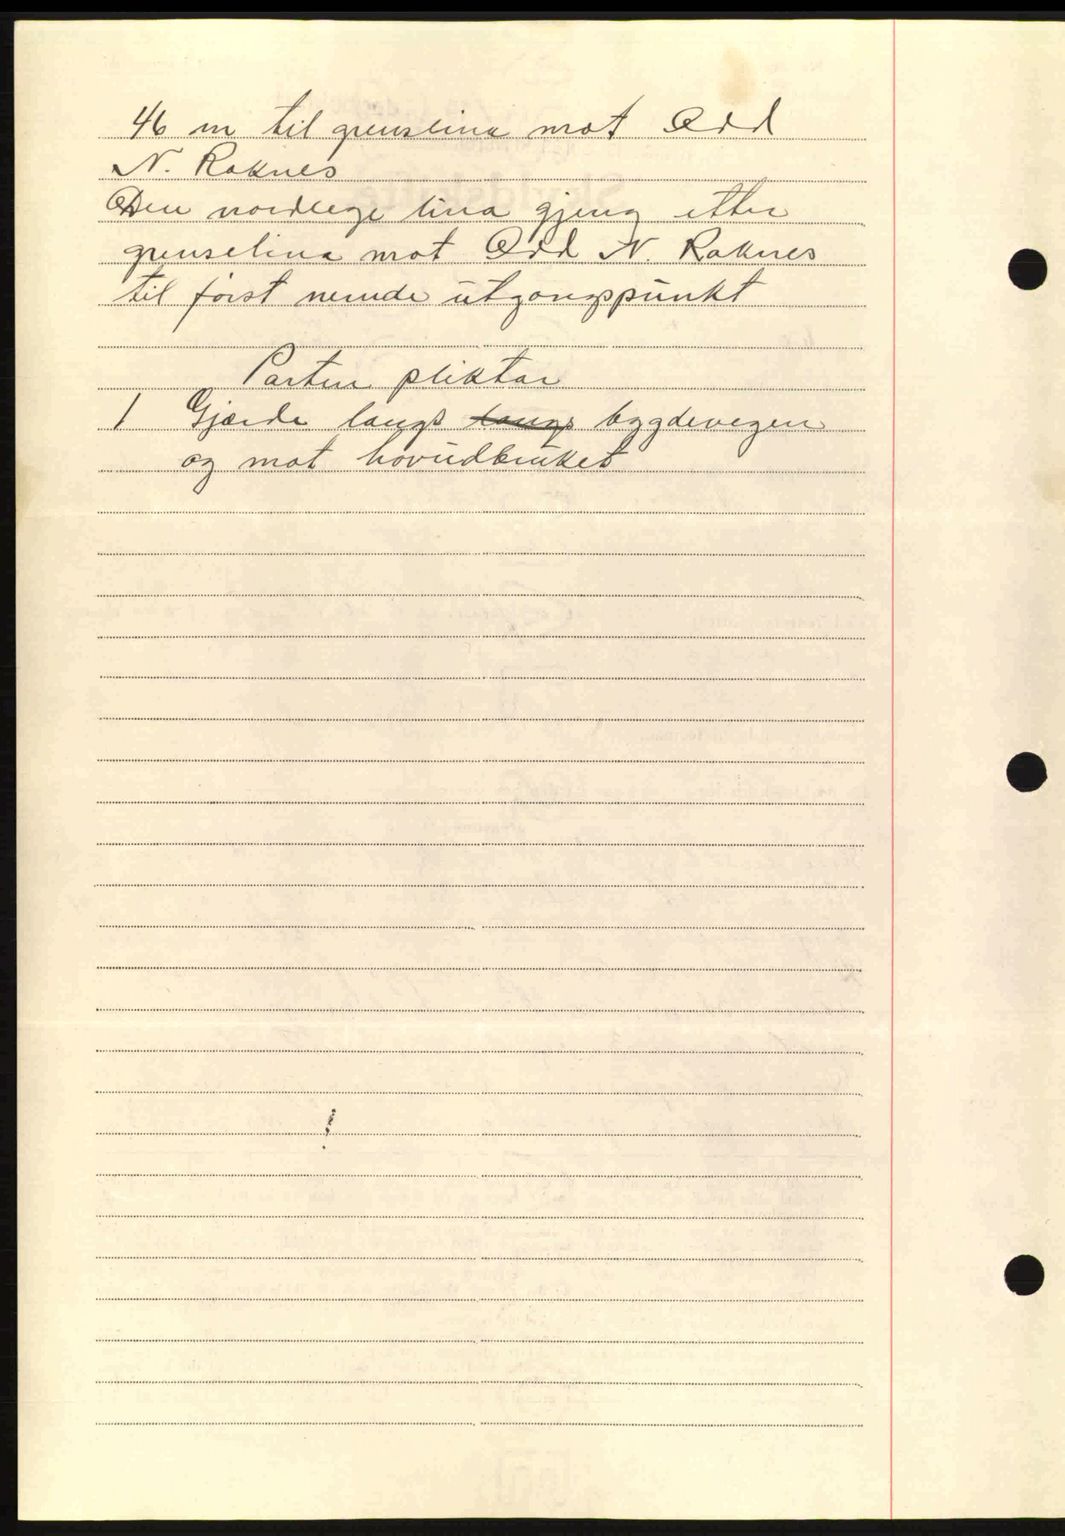 46 m til grenselina mot Odd
N. Raknes
Den nordlege lina gjeng etter
grenselina mot Odd N. Raknes
til først nemnde utgangspunkt
Parten pliktar
1 Gjærde langs langs bygdevegen
og mot hovudbruket